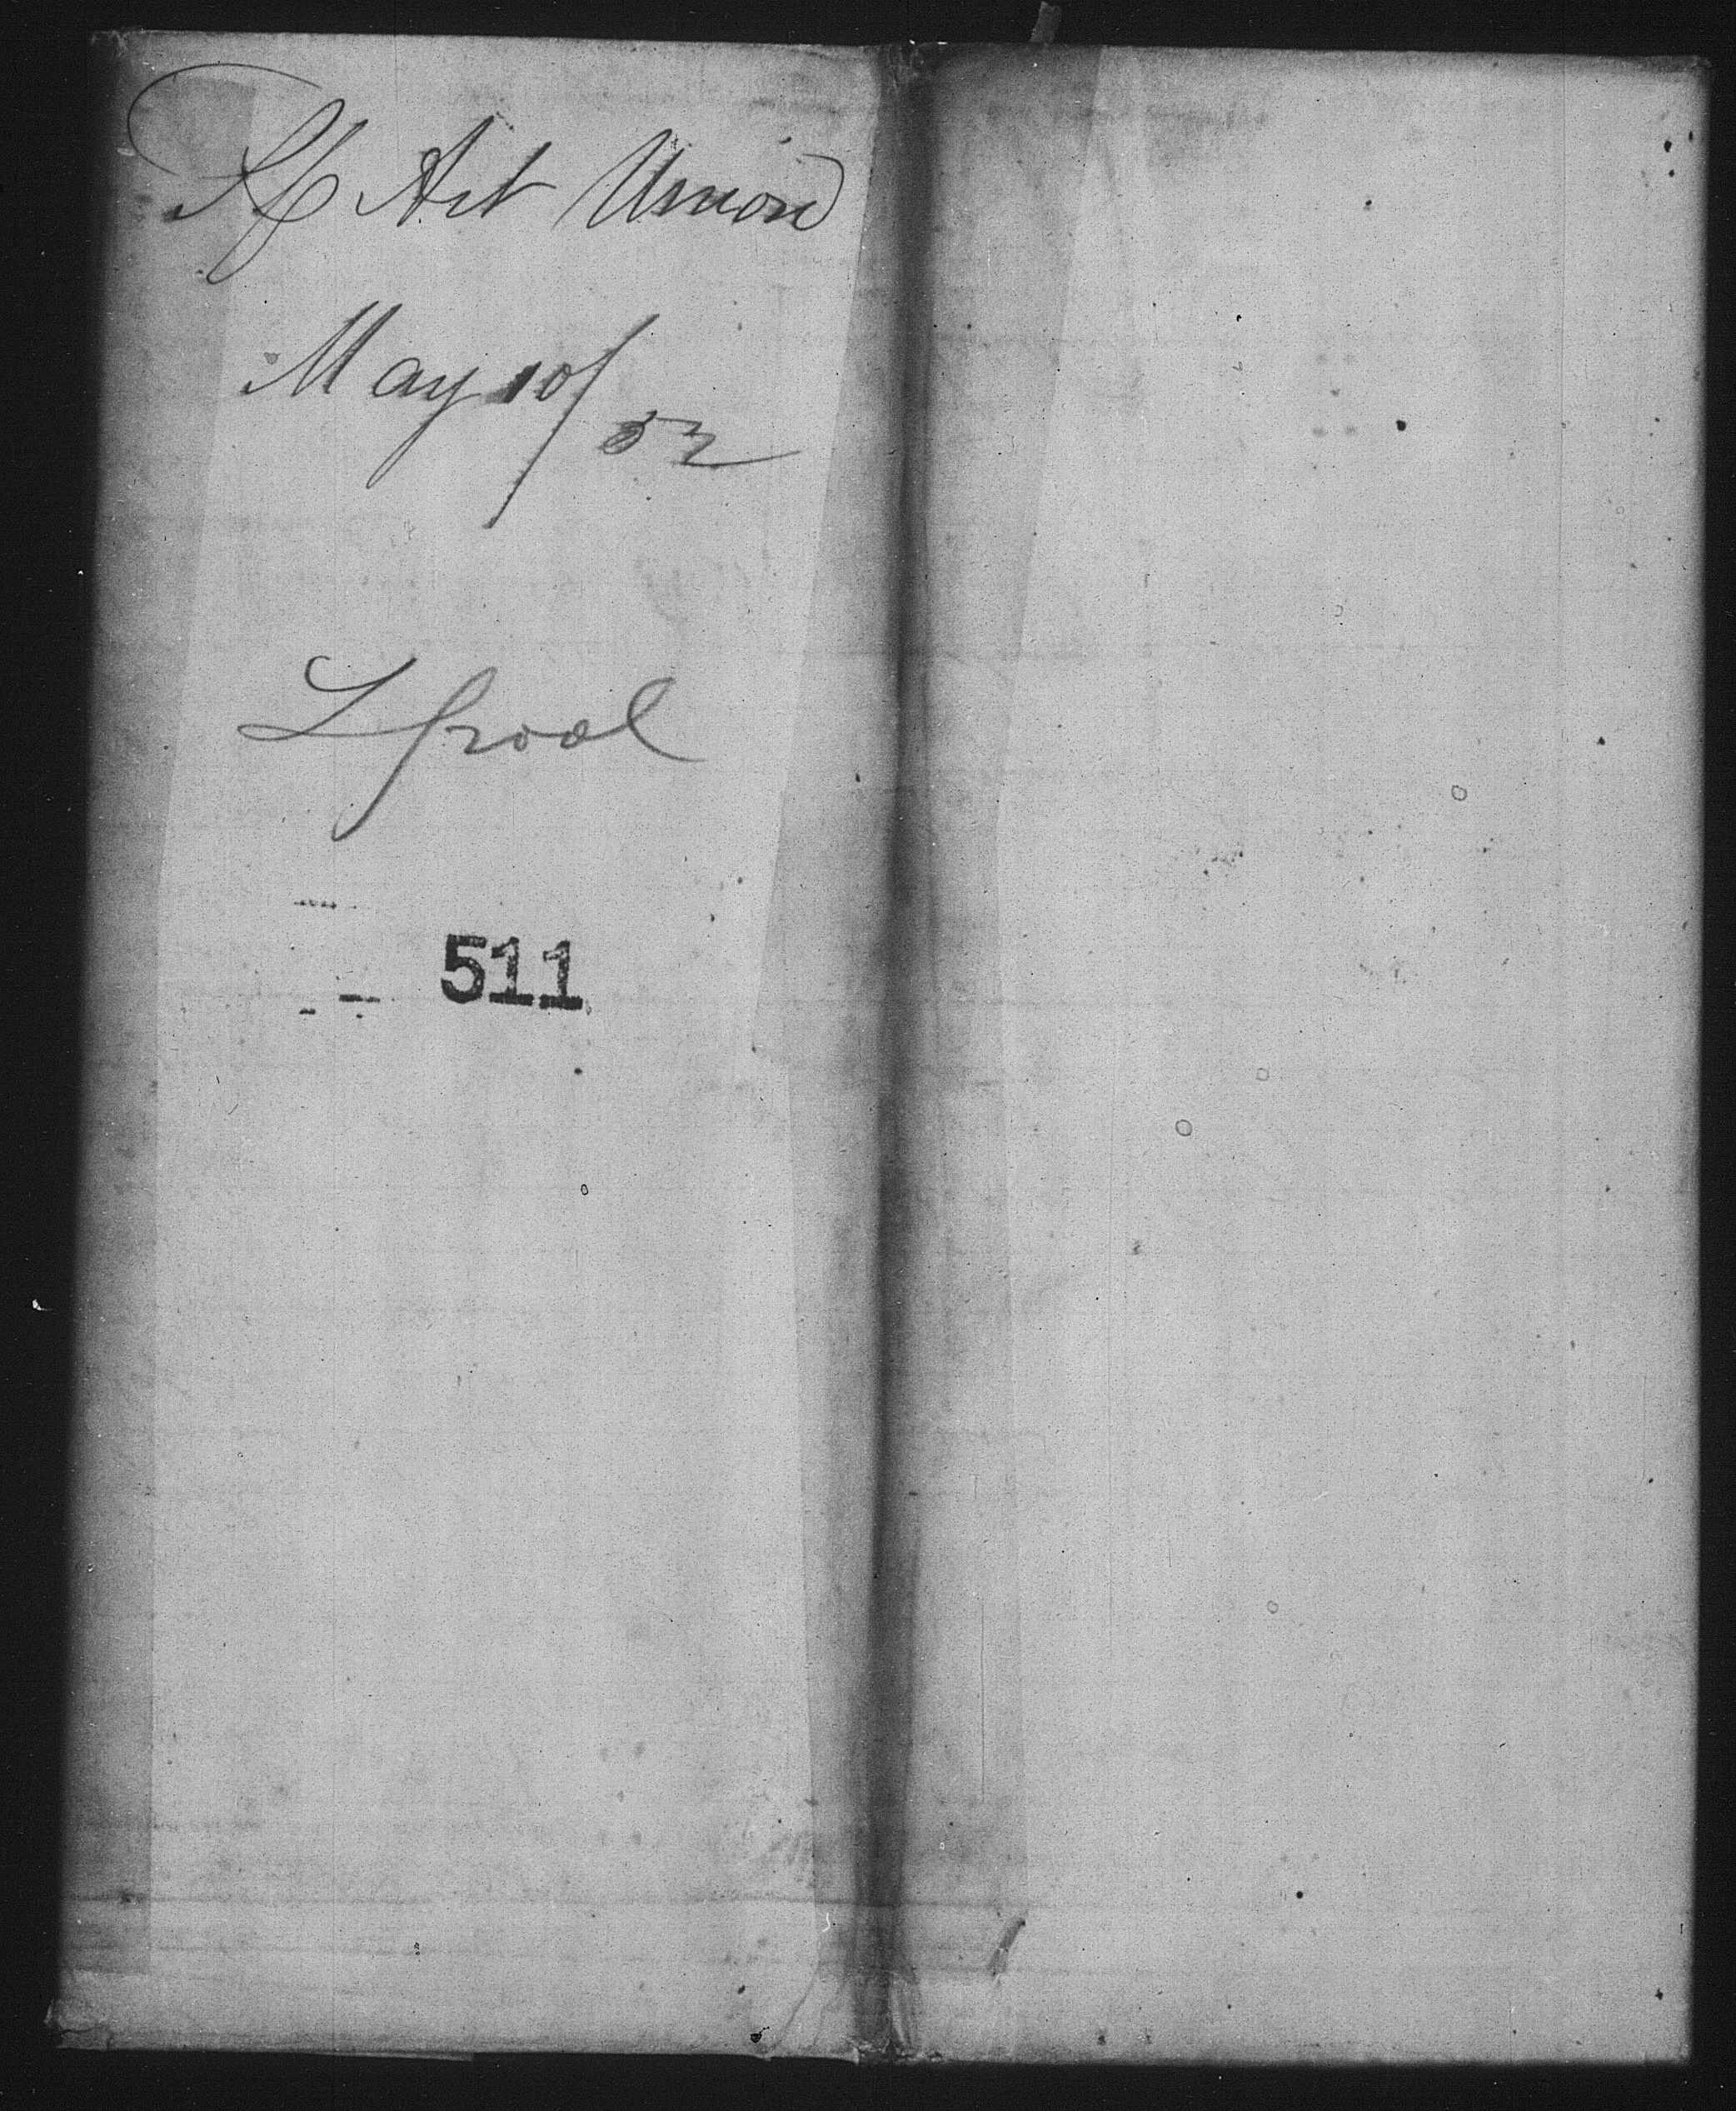 Sf Art Union
May 10/52
Lpool
511